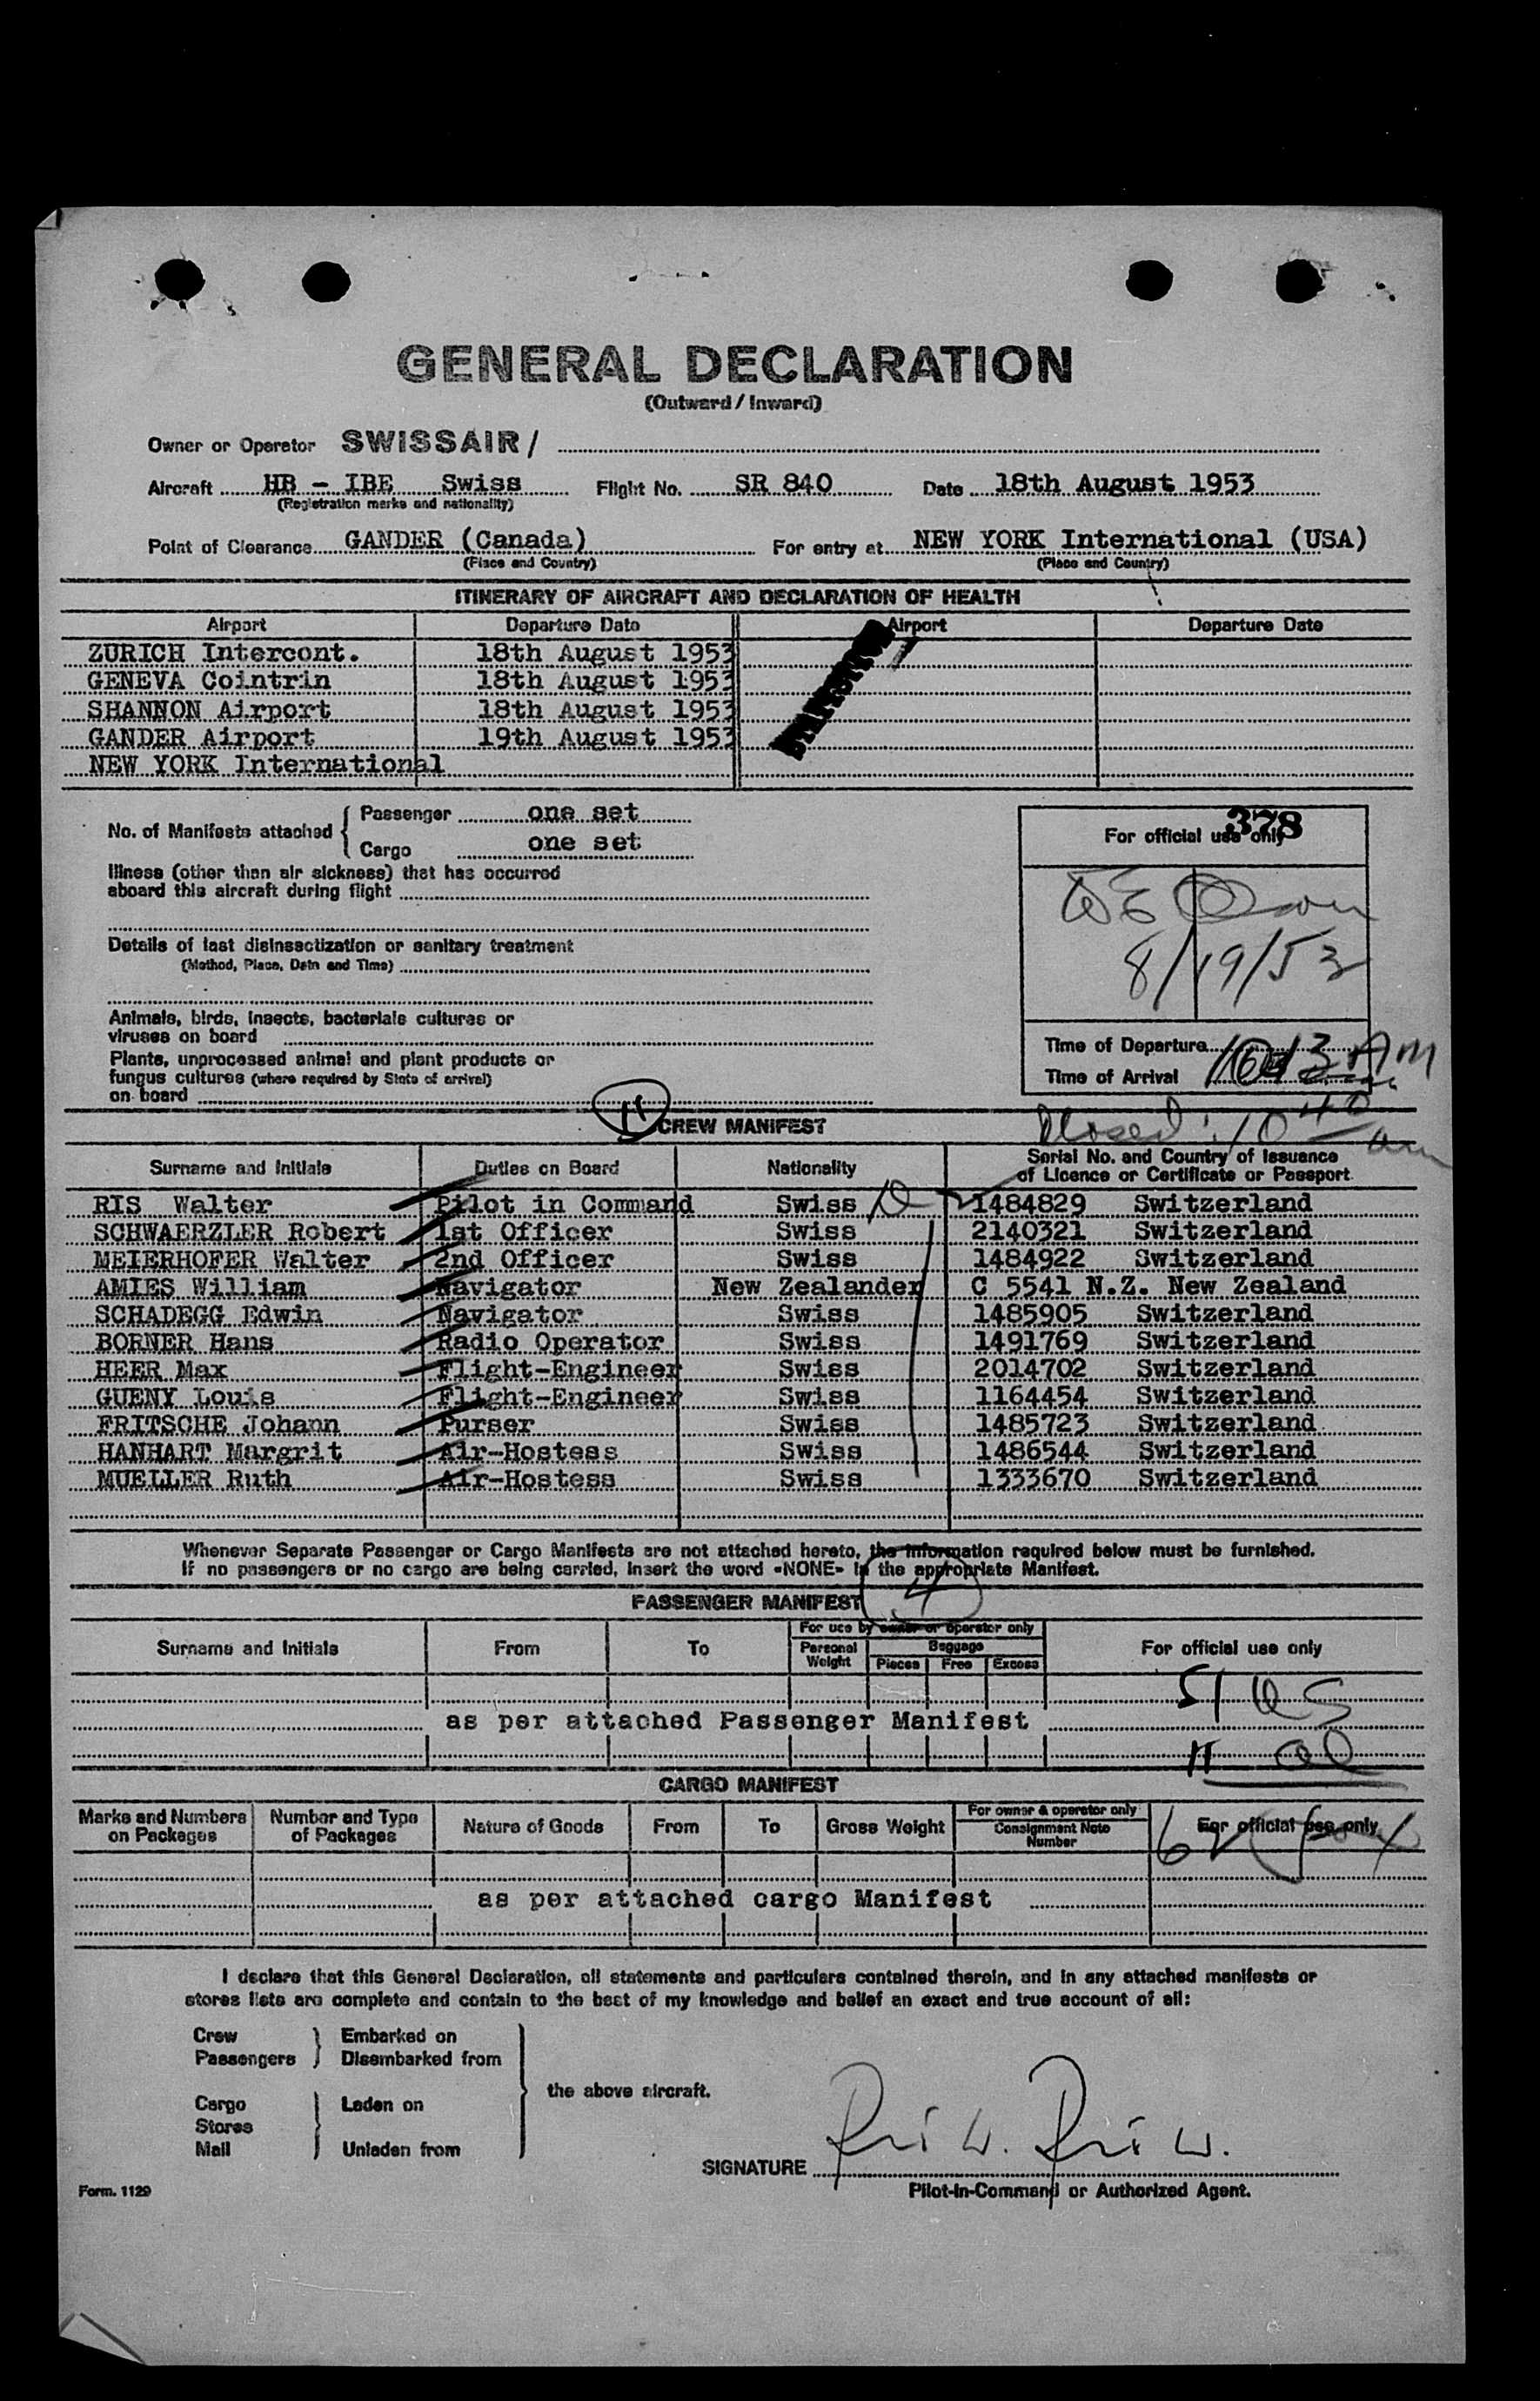 GENERAL DECLARATION
(Outward / Inward)
Owner or Operator SWISSAIR /
Aircraft HB - IBE Swiss Flight No. SR 840 Date 18th August 1953
(Registration marks and nationality)
Point of Clearance GANDER (Canada) For entry at NEW YORK International (USA)
(Place and Country) (Place and Country)
ITINERARY OF AIRCRAFT AND DECLARATION OF HEALTH
Airport Departure Date Airport Departure Date
ZURICH Intercont. 18th August 1953
GENEVA Cointrin 18th August 1953
SHANNON Airport 18th August 1953
GANDER Airport 19th August 1953
NEW YORK International
No. of Manifests attached
Passenger one set
Cargo one set
378
For official use only
Illness (other than air sickness) that has occurred
aboard this aircraft during flight
Details of last disinsectization or sanitary treatment
(Method, Place, Date and Time)
8/19/53
Animals, birds, insects, bacterials cultures or
viruses on board
Plants, unprocessed animal and plant products or
fungus cultures (where required by State of arrival)
on board
Time of Departure
Time of Arrival
AM
11
CREW MANIFEST
Closed: 10 40 am
Surname and Initials Duties on Board Nationality Serial No. and Country of Issuance
of Licence or Certificate or Passport
RIS Walter Pilot in Command Swiss 1484829 Switzerland
SCHWAERZLER Robert 1st Officer Swiss 2140321 Switzerland
MEIERHOFER Walter 2nd Officer Swiss 1484922 Switzerland
AMIES William Navigator New Zealander C 5541 N.Z. New Zealand
SCHADEGG Edwin Navigator Swiss 1485905 Switzerland
BORNER Hans Radio Operator Swiss 1491769 Switzerland
HEER Max Flight-Engineer Swiss 2014702 Switzerland
GUENY Louis Flight-Engineer Swiss 1164454 Switzerland
FRITSCHE Johann Purser Swiss 1485723 Switzerland
HANHART Margrit Air-Hostess Swiss 1486544 Switzerland
MUELLER Ruth Air-Hostess Swiss 1333670 Switzerland
Whenever Separate Passenger or Cargo Manifests are not attached hereto, the information required below must be furnished.
If no passengers or no cargo are being carried, insert the word «NONE» in the appropriate Manifest.
PASSENGER MANIFEST
4
Surname and Initials From To For use by owner or operator only For official use only
Personal Weight Baggage
Pieces Free Excess
51 US
as per attached Passenger Manifest
11 al
CARGO MANIFEST
Marks and Numbers on Packages Number and Type of Packages Nature of Goods From To Gross Weight For owner & operator only Consignment Note Number For official use only
62
as per attached cargo Manifest
I declare that this General Declaration, all statements and particulars contained therein, and in any attached manifests or
stores lists are complete and contain to the best of my knowledge and belief an exact and true account of all:
Crew Embarked on
Passengers Disembarked from
the above aircraft.
Cargo Laden on
Stores
Mail Unladen from
SIGNATURE Ris W. Ris W.
Pilot-in-Command or Authorized Agent.
Form. 1129